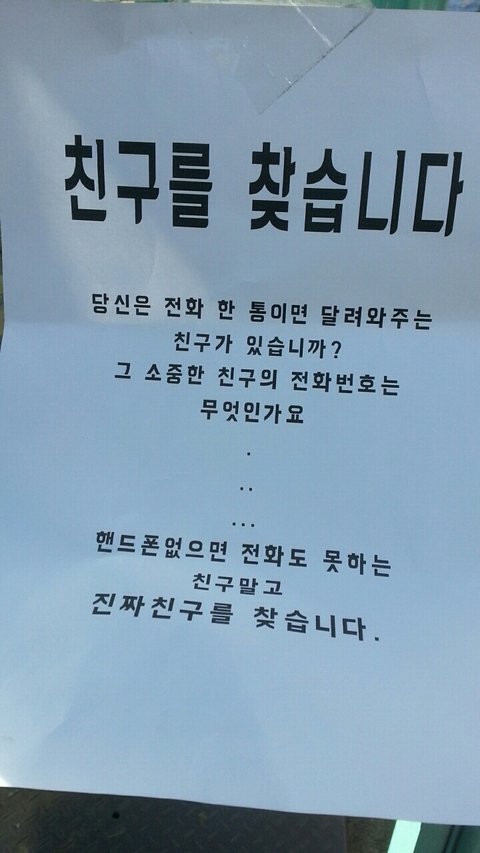 친구를 찾습니다
당신은 전화 한 통이면 달려와주는
친구가 있습니까?
그 소중한 친구의 전화번호는
무엇인가요
.
..
...
핸드폰없으면 전화도 못하는
친구말고
진짜친구를 찾습니다.